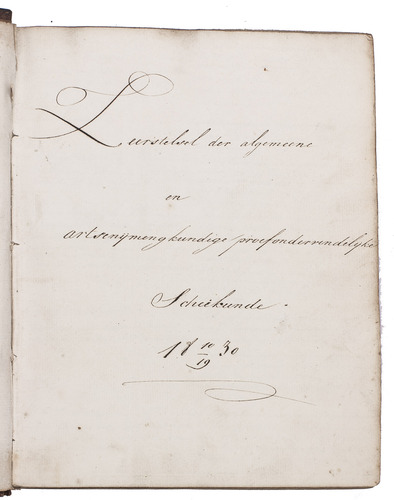 Leerstelsel der algemeene
en
artsenijmengkundige proefondervindelijke
Scheikunde.
18 10/19 30